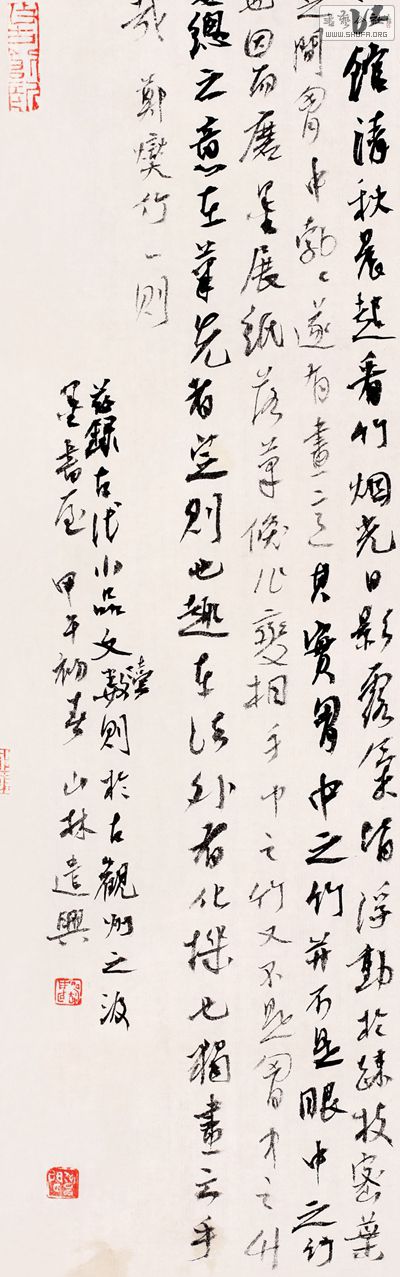 江館清秋晨起看竹烟光日影露氣皆浮動於疎枝密葉
之間胸中勃々遂有畫意其實胸中之竹并不是眼中之竹
也因而磨墨展紙落筆倏作變相手中之竹又不是胸中之竹
也總之意在筆先者定則也趣在法外者化機也獨畫云乎
哉 鄭燮竹一則
茲錄古代小品文數則於古觀州之波
墨書屋 甲午初春 山林遣興
WWW.SHUFA.ORG